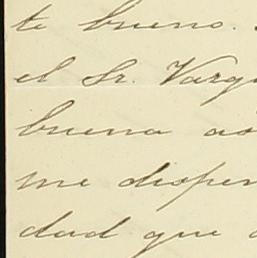 te bueno.
el Sr. Varg
buena as
me dispen
dad que